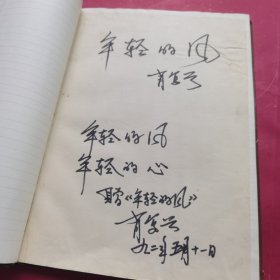 年轻的风
肖复兴
年轻的风
年轻的心
赠《年轻的风》
肖复兴
九二年五月十一日